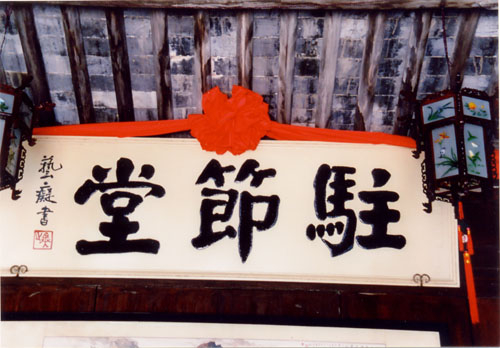 駐節堂
藝癡書